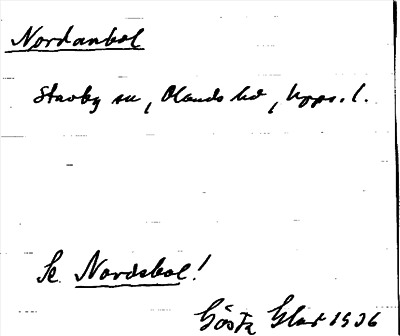 Nordanbol
Stavby sn, Olands hd, Upps. l.
Se Nordsbol!
Gösta Glas 1936